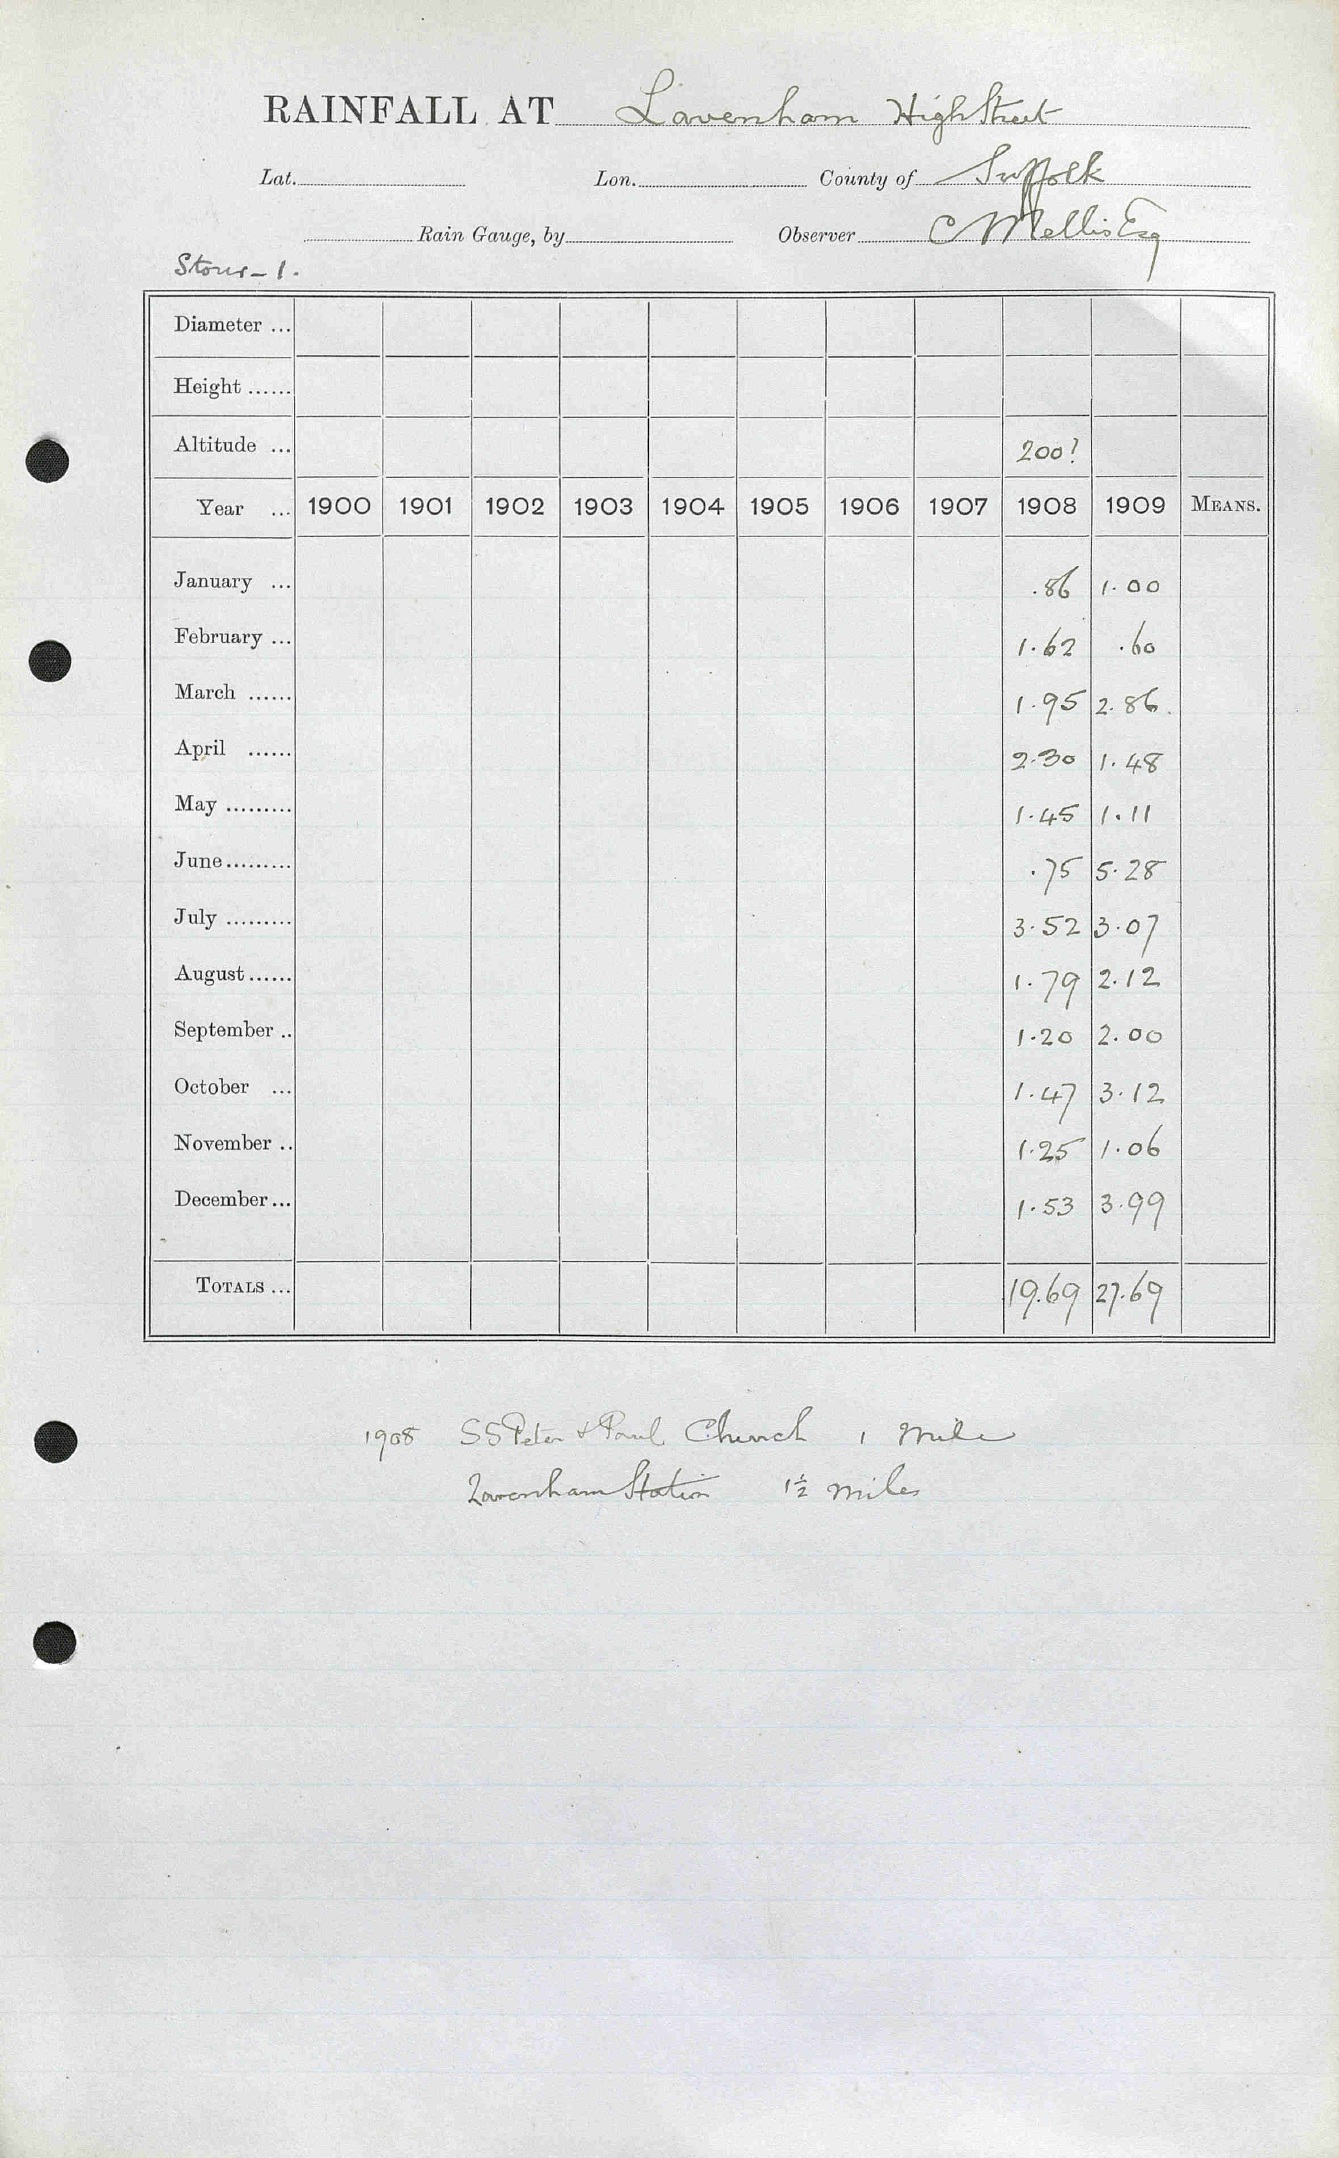 RAINFALL AT Lavenham High Street
Lat. Lon. County of Suffolk
Rain Gauge, by Observer C Mellis Esq
Stour - 1.
Diameter ...
Height ......
Altitude ... 200?
Year ... 1900 1901 1902 1903 1904 1905 1906 1907 1908 1909 MEANS.
January ... .86 1.00
February ... 1.62 .60
March ...... 1.95 2.86
April ...... 2.30 1.48
May ......... 1.45 1.11
June ......... .75 5.28
July ......... 3.52 3.07
August ...... 1.79 2.12
September .. 1.20 2.00
October ... 1.47 3.12
November .. 1.25 1.06
December ... 1.53 3.99
TOTALS ... 19.69 27.69
1908 SS Peter & Paul Church 1 Mile
Lavenham Station 1½ miles